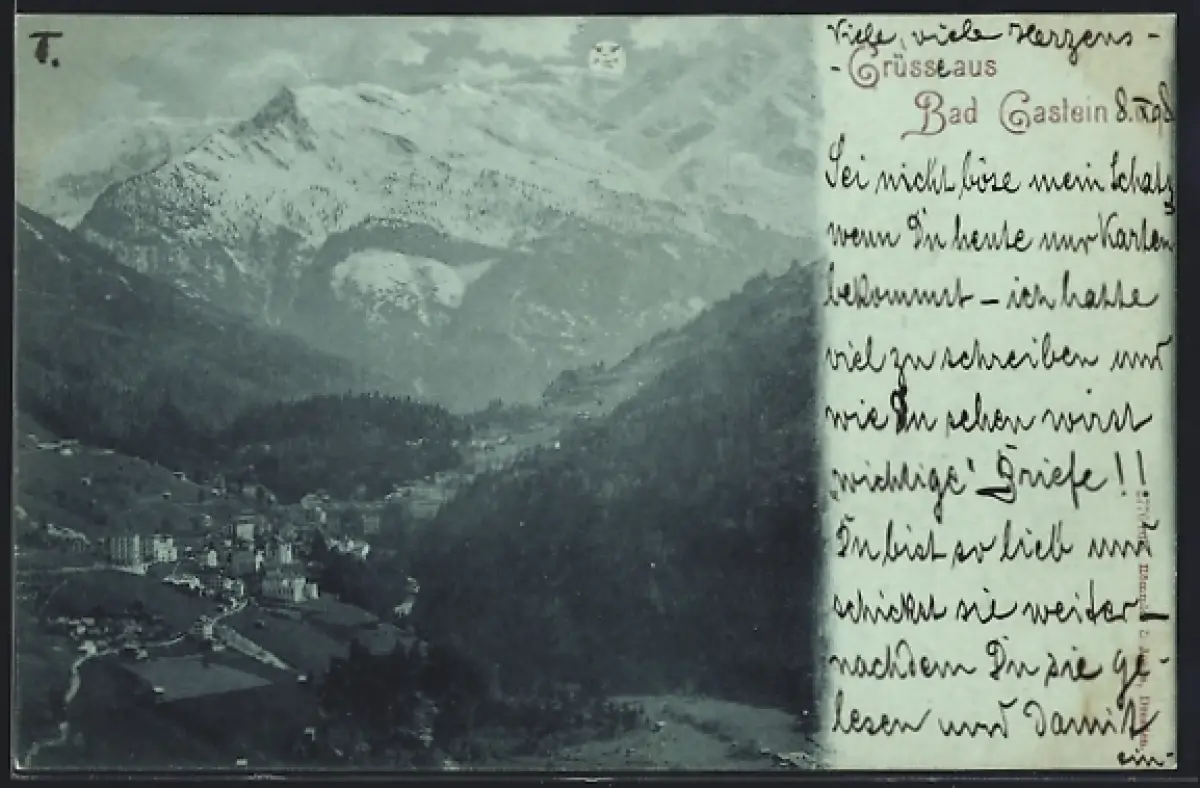 I.
Viele, viele Herzens-
-Grüsse aus
Bad Gastein 8.
Sei nicht böse mein Schatz
wenn Du heute nur Karten
bekommst – ich hatte
viel zu schreiben und
wie Du sehen wirst
„wichtige‘ Briefe!!
Du bist so lieb und
schickst sie weiter –
nachdem Du sie ge-
lesen und damit
ein-